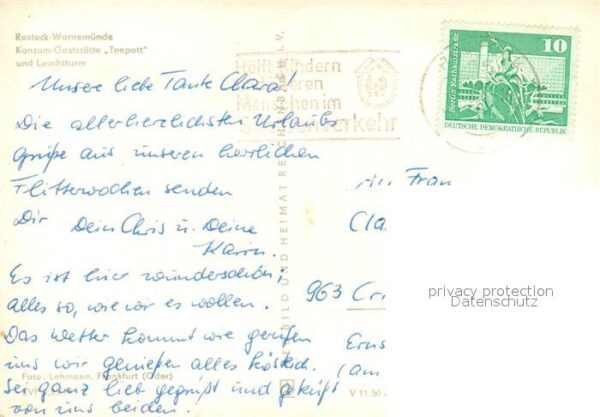 Rostock-Warnemünde
Konsum-Gaststätte „Teepott"
und Leuchtturm
Helft Kindern
älteren
Menschen im
Straßenverkehr
10
Berlin, Rathausstraße
DEUTSCHE DEMOKRATISCHE REPUBLIK
Unsere liebe Tante Clara!
Die allerherzlichsten Urlaubs
grüße aus unseren herrlichen
Flitterwochen senden
Dir Dein Chris u. Deine
Karin.
Es ist hier wunderschön;
alles so, wie wir es wollen.
Das Wetter kommt wie gerufen
und wir genießen alles köstlich.
Sei ganz lieb gegrüßt und geküßt
von uns beiden.
Foto: Lehmann, Frankfurt (Oder)
BILD UND HEIMAT REICHENBACH I. V.
V 11 50
An Frau
Cla
963 Cri
Erns
(am
privacy protection
Datenschutz